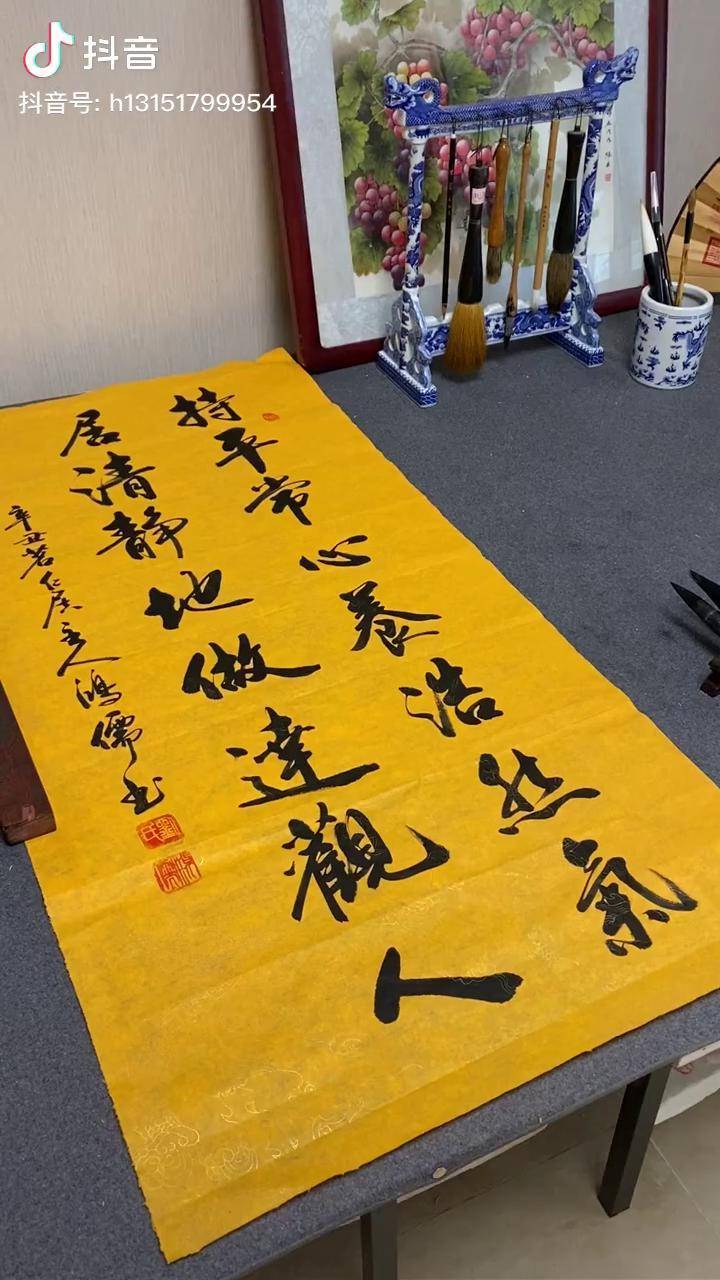 抖音
抖音号: h13151799954
持平常心養浩然氣
居清静地做達觀人
辛丑茗仁居主人鴻儒书